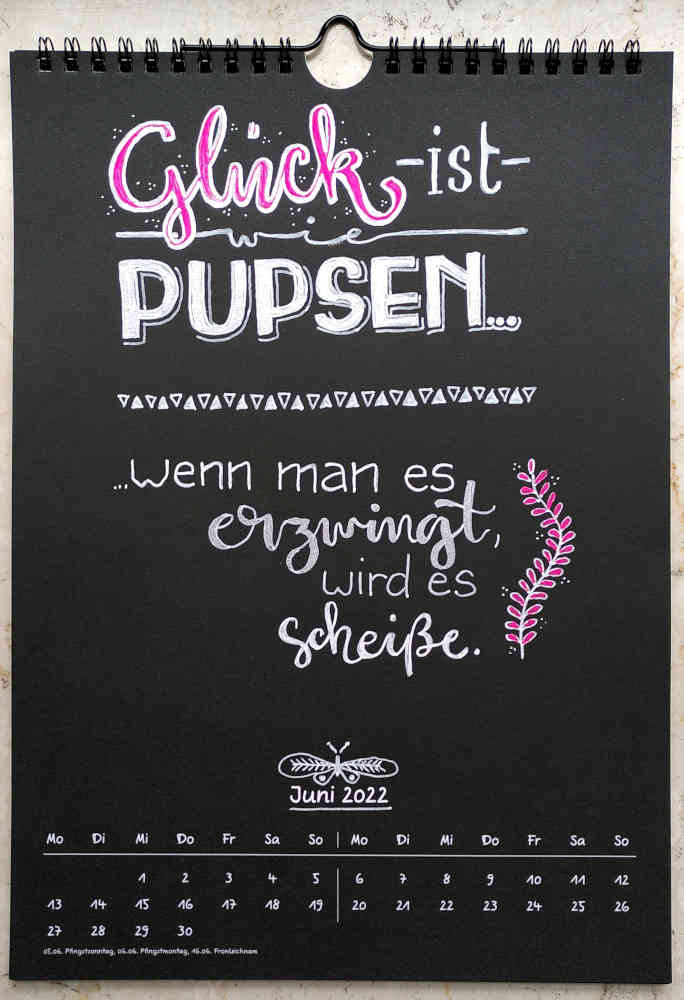 Glück -ist-
wie
PUPSEN...
...wenn man es
erzwingt,
wird es
scheiße.
Juni 2022
Mo Di Mi Do Fr Sa So | Mo Di Mi Do Fr Sa So
1 2 3 4 5 6 7 8 9 10 11 12
13 14 15 16 17 18 19 20 21 22 23 24 25 26
27 28 29 30
05.06. Pfingstsonntag, 06.06. Pfingstmontag, 16.06. Fronleichnam